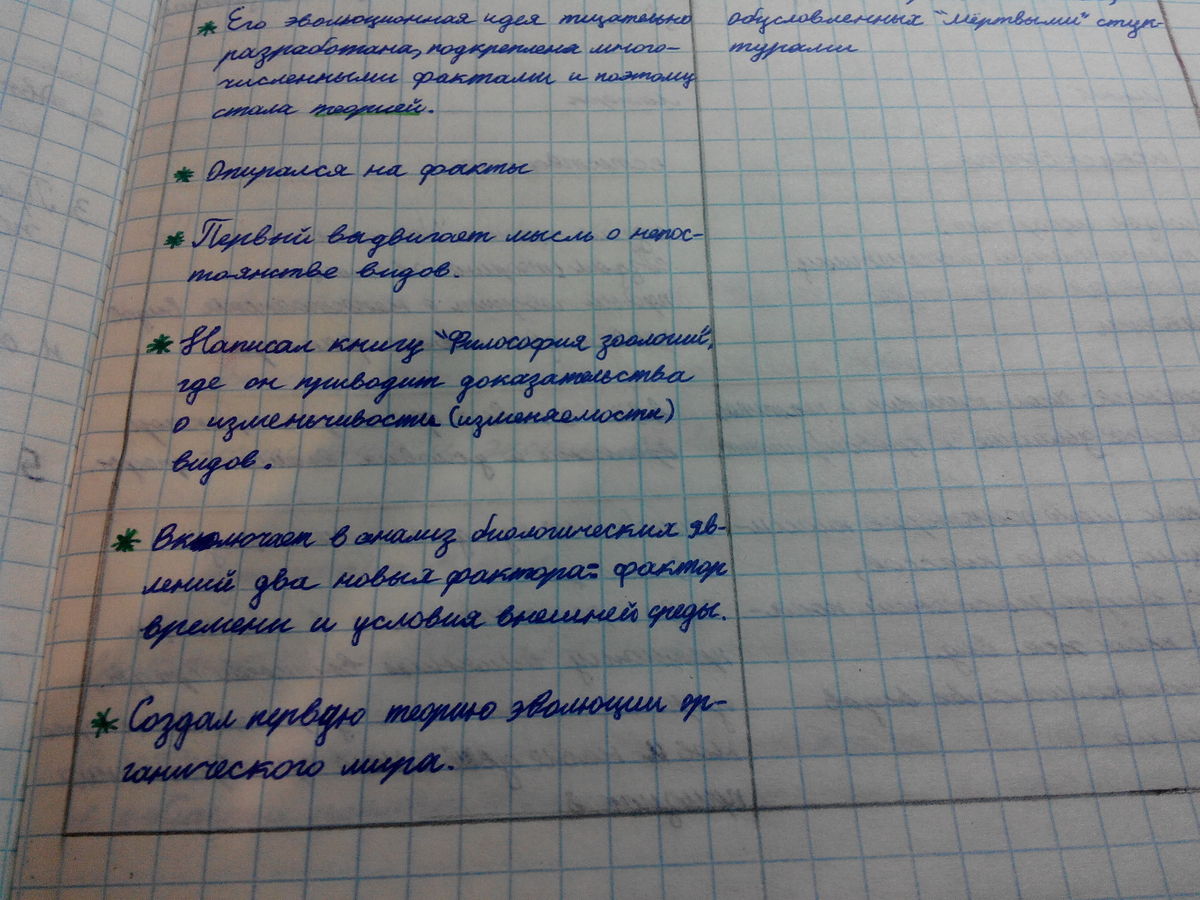 * Его эволюционная идея тщательно
разработана, подкреплена много-
численными фактами и поэтому
стала теорией.
* Опирался на факты
* Первый выдвигает мысль о непос-
тоянстве видов.
* Написал книгу "Философия зоологии",
где он приводит доказательства
о изменьчивости (изменяемости)
видов.
* Включает в анализ биологических яв-
лений два новых фактора: фактор
времени и условия внешней среды.
* Создал первую теорию эволюции ор-
ганического мира.
обусловленных "мёртвыми" струк-
турами